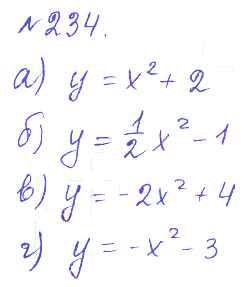 №234.
а) y = x² + 2
б) y = 1/2 x² - 1
в) y = -2x² + 4
г) y = -x² - 3